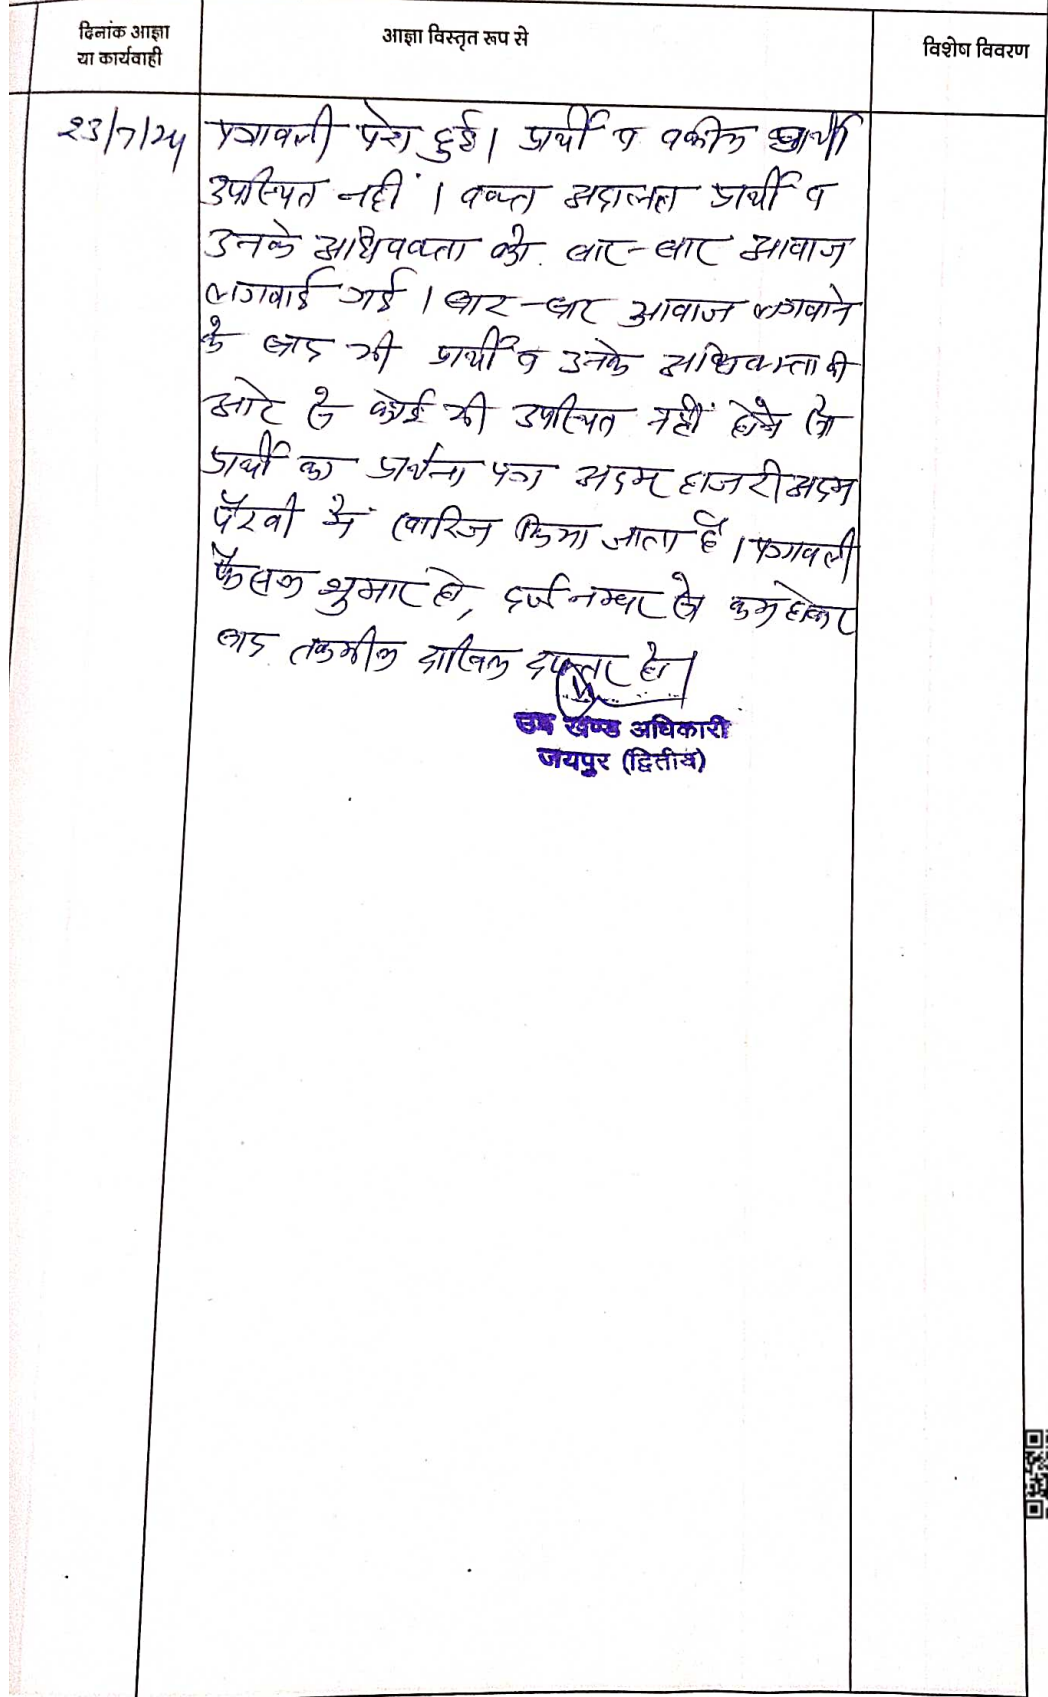 दिनांक आज्ञा
या कार्यवाही
आज्ञा विस्तृत रूप से
विशेष विवरण
23/7/24
पत्रावली पेश हुई। प्रार्थी व वकील प्रार्थी
उपस्थित नहीं । वक्त अदालत प्रार्थी व
उनके अधिवक्ता को बार-बार आवाज
लगवाई गई । बार-बार आवाज लगवाने
के बाद भी प्रार्थी व उनके अधिवक्ता की
ओर से कोई भी उपस्थित नहीं होने से
प्रार्थी का प्रार्थना पत्र अदम हाजरी अदम
पैरवी में खारिज किया जाता है । पत्रावली
फैसल शुमार हो, दर्ज नम्बर से कम होकर
बाद तकमील दाखिल दफ्तर हो।
उप खण्ड अधिकारी
जयपुर (द्वितीय)